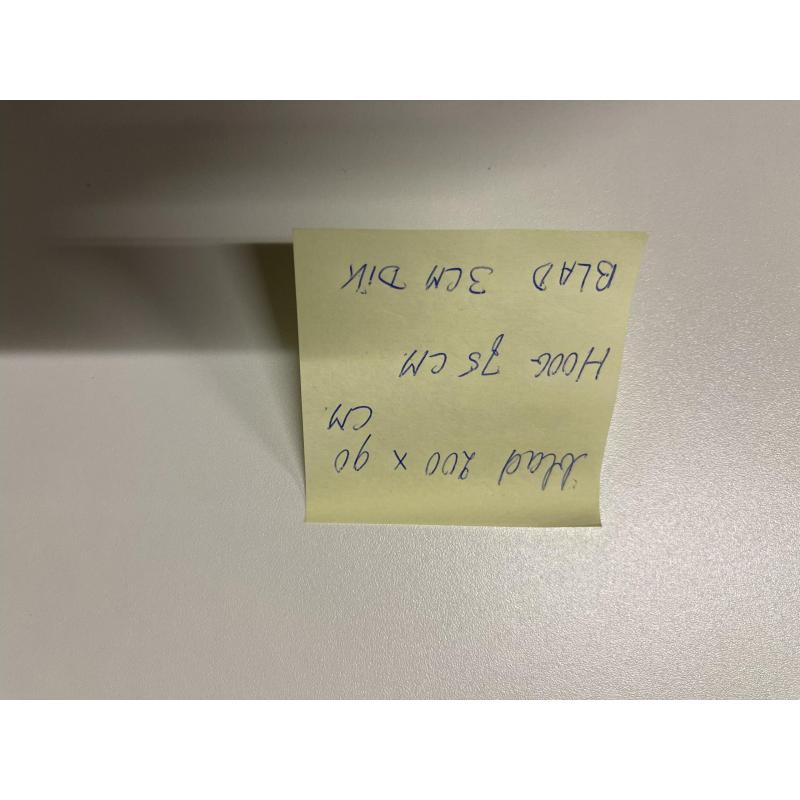 blad 200 x 90
CM.
HOOG 75 CM.
BLAD 3CM DIK